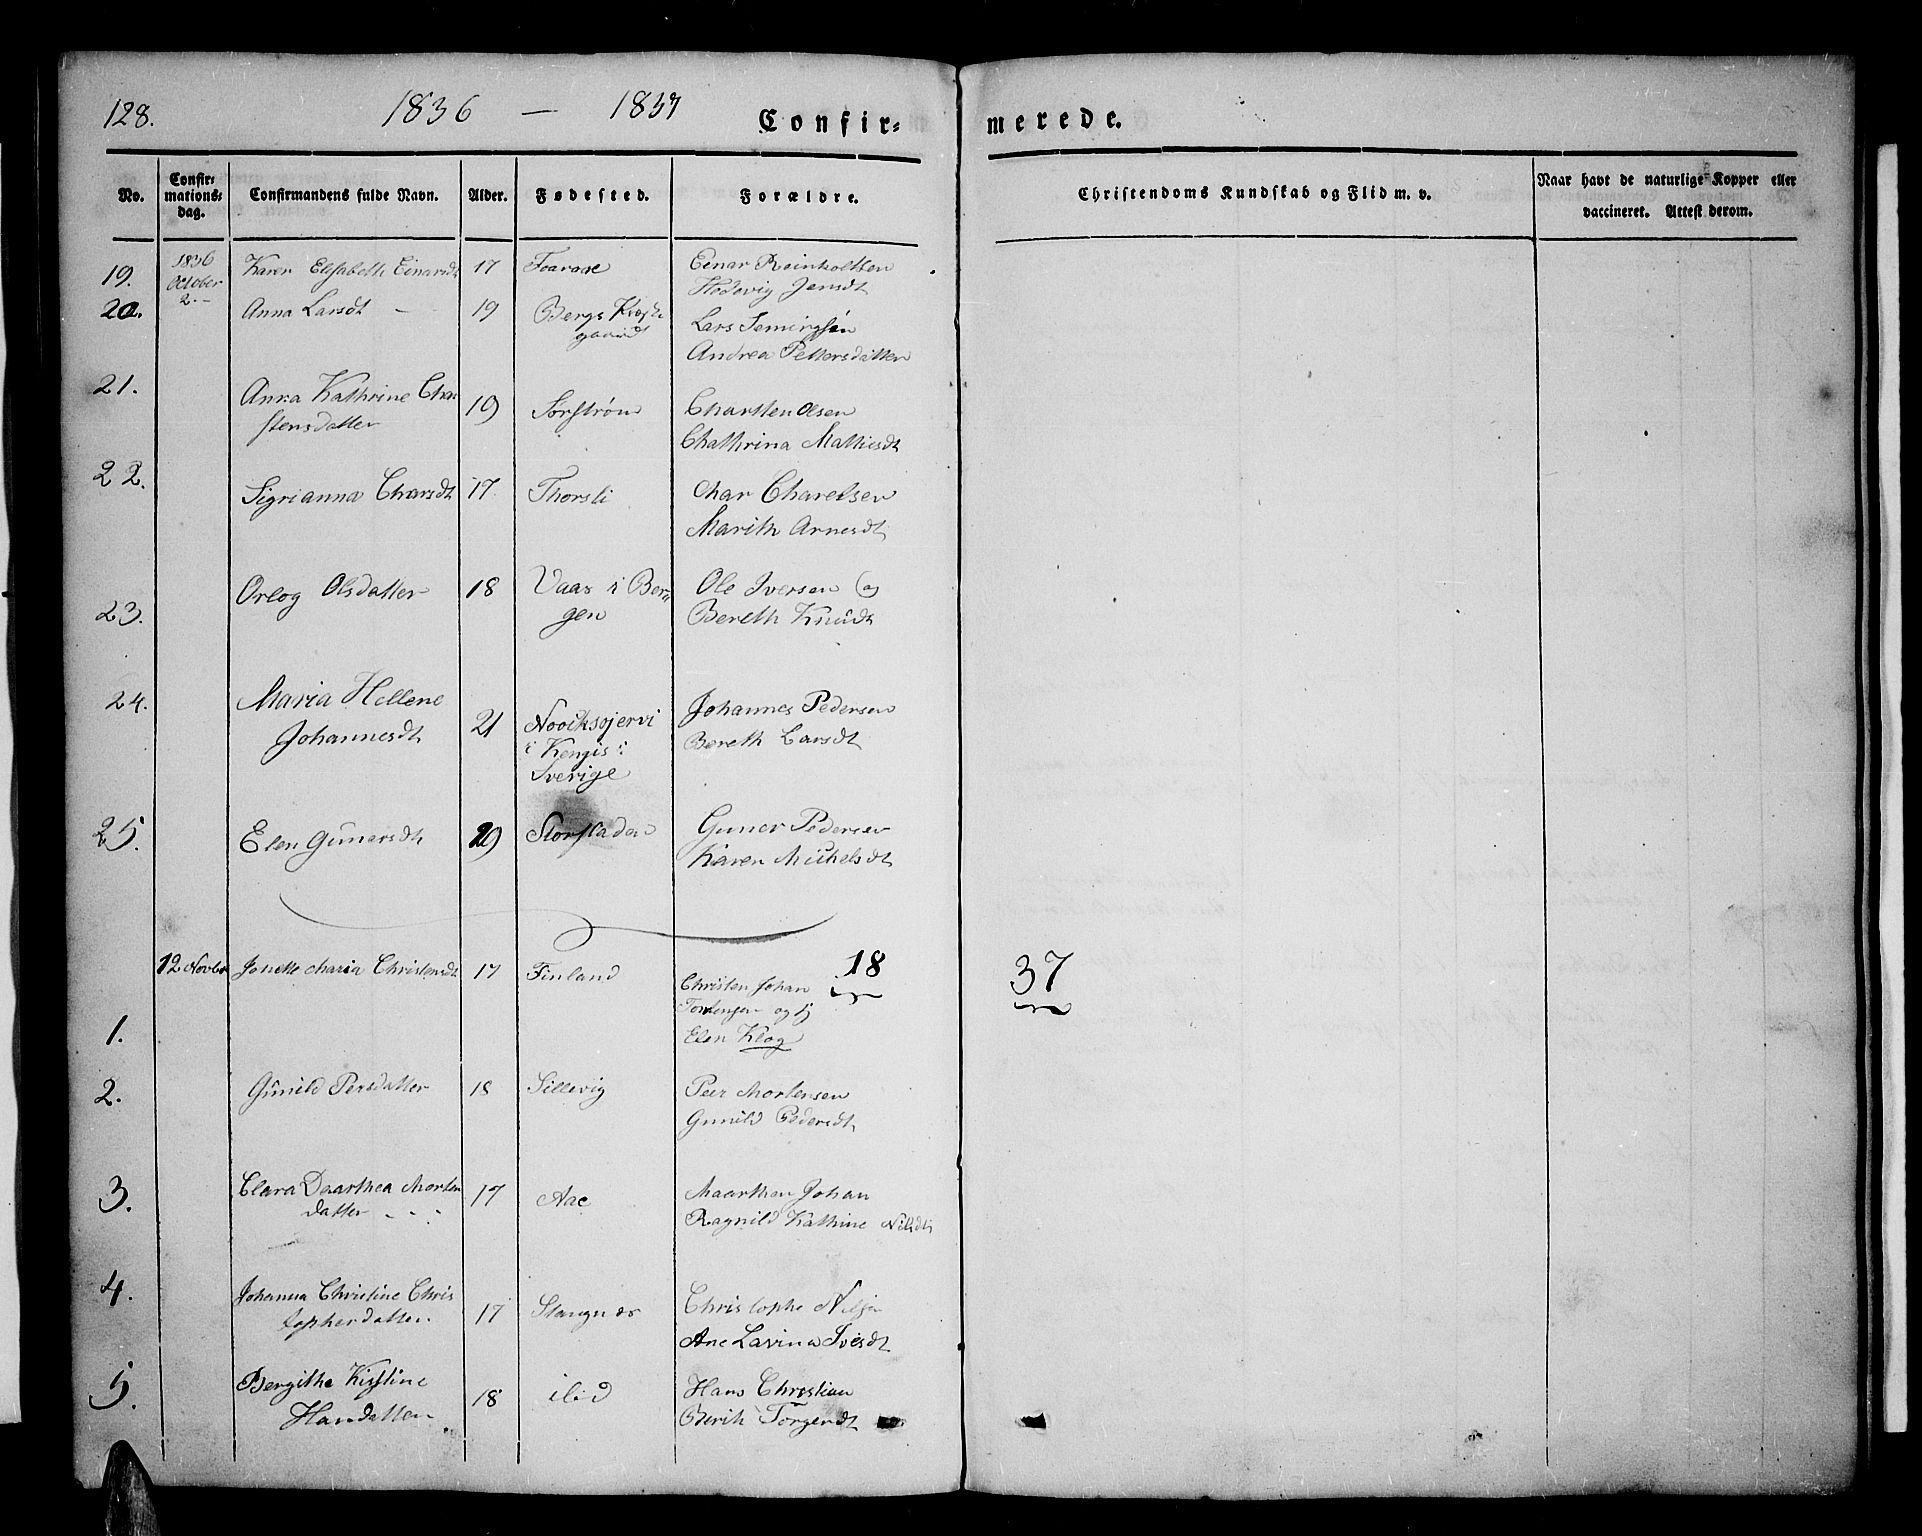 128. 1836 — 1837 Confir= merede.
No. Confir= mations= dag. Confirmandens fulde Navn. Alder. Fødested. Forældre. Christendoms Kundskab og Flid m. v. Naar havt de naturlige Kopper eller vaccineret. Attest derom.
19. 1836 October 2. Karen Elisabeth Einarsdt 17 Foarase Einar Reinholtsen
Hedevig Jensdt
20. Anna Larsdt 19 Bergs Lars
gaard Andrea Pettersdatter
21. Anna Kathrine Char 19 Sørstrøm Charsten Olsen
stensdatter Chathrina Mathiesdt
22. Sigrianna Charsdt 17 Thorsli Char Charelsen
Marith Arnesdt
23. Orlog Olsdatter 18 Vaas i Ber= Ole Iversen og
gen Bereth Knudt
24. Maria Hellene 21 Nooiksojervi Johannes Pedersen
Johannesdt i Kengis i Bereth Larsdt
Sverige
25. Elen Gunersdt 29 Storsladen Guner Pedersen
Karen Michelsdt
12 Novbr Jonette Maria Christensdt 17 Finland 18 37
Christen Johan
og
1. Elen Klog
2. Gunild Persdatter 18 Sillevig Peer Mortensen
Gunild Pedersdt
3. Clara Daarthea Morten 17 Aae Maarthen Johan
datter Ragnild Kathrine Nilsdt
4. Johanna Christine Chris 17 Stangnes Christophe Nilsen
topherdatter Ane Lavina Ivesdt
5. Bergithe Kirstine 18 ibid Hans Christian
Hansdatter Berith Torgersdt